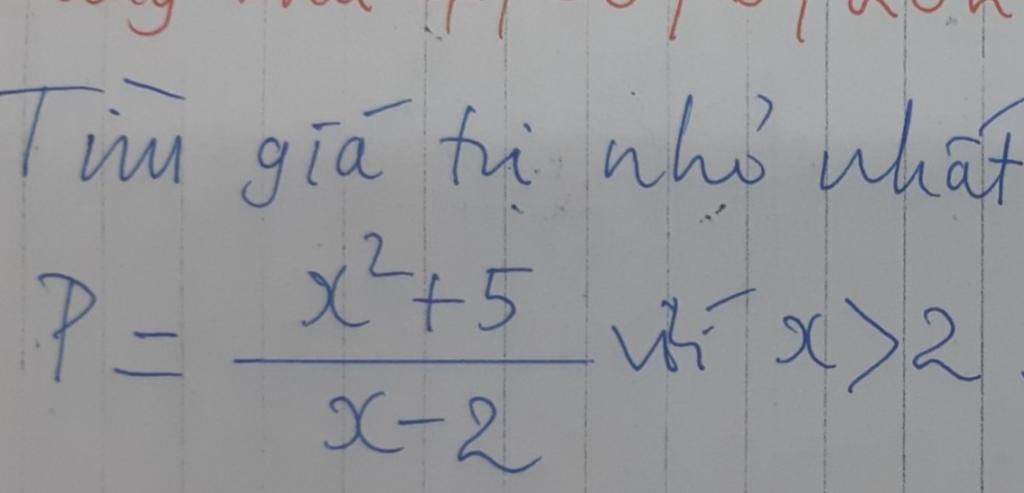 Tìm giá trị nhỏ nhất
P = \frac{x^2+5}{x-2} với x > 2.